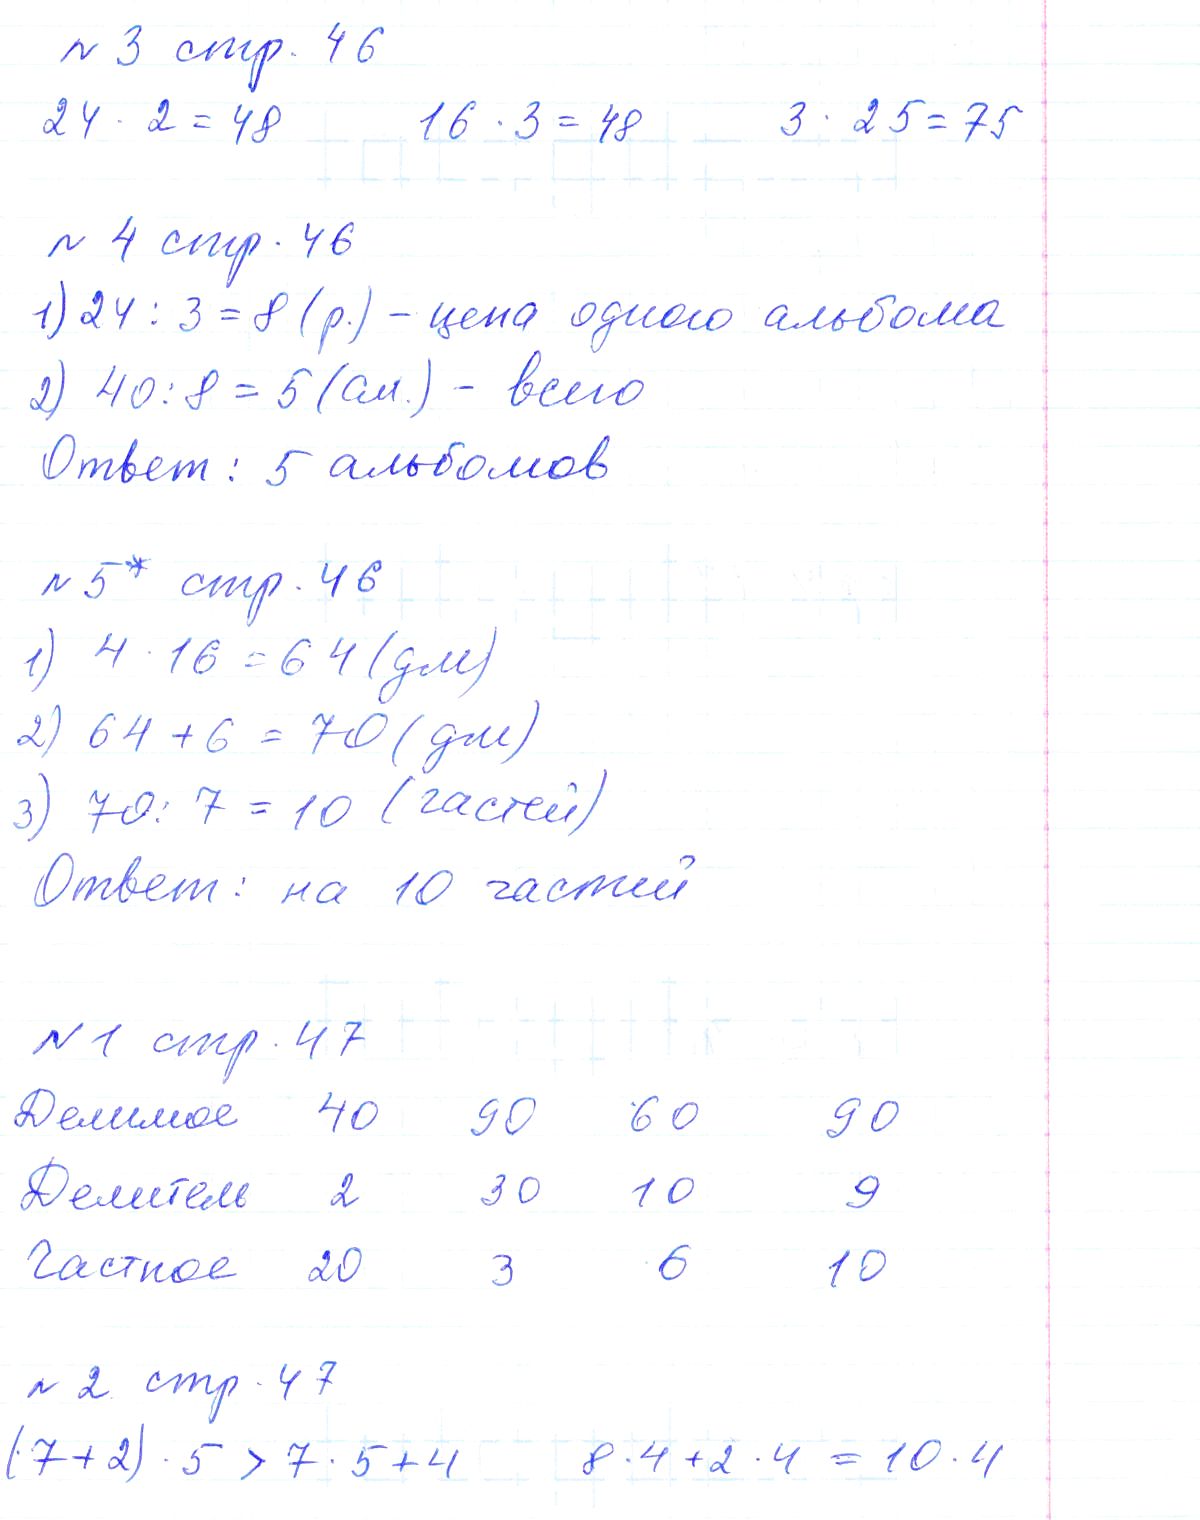 № 3 стр. 46
24 · 2 = 48 16 · 3 = 48 3 · 25 = 75
№ 4 стр. 46
1) 24 : 3 = 8 (р.) – цена одного альбома
2) 40 : 8 = 5 (ал.) – всего
Ответ: 5 альбомов
№ 5* стр. 46
1) 4 · 16 = 64 (дм)
2) 64 + 6 = 70 (дм)
3) 70 : 7 = 10 (частей)
Ответ: на 10 частей
№ 1 стр. 47
Делимое 40 90 60 90
Делитель 2 30 10 9
Частное 20 3 6 10
№ 2 стр. 47
(7 + 2) · 5 > 7 · 5 + 4 8 · 4 + 2 · 4 = 10 · 4